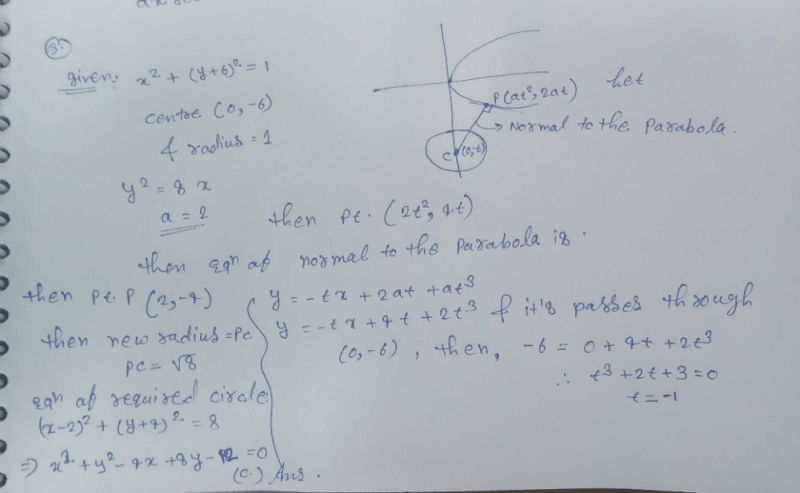 8.
given: x² + (y+6)² = 1
centre (0, -6)
& radius = 1
y² = 8x
a = 2
P(at², 2at) let
→ Normal to the Parabola.
C (0,-6)
then Pt. (2t², 4t)
then eqn of normal to the Parabola is.
y = -tx + 2at + at³
y = -tx + 4t + 2t³ & it's passes through
(0, -6), then, -6 = 0 + 4t + 2t³
∴ t³ + 2t + 3 = 0
t = -1
then Pt. P (2, -4)
then new radius = PC
PC = √8
eqn of required circle:
(x-2)² + (y+4)² = 8
⇒ x² + y² - 4x + 8y - 12 = 0
(C.) Ans.